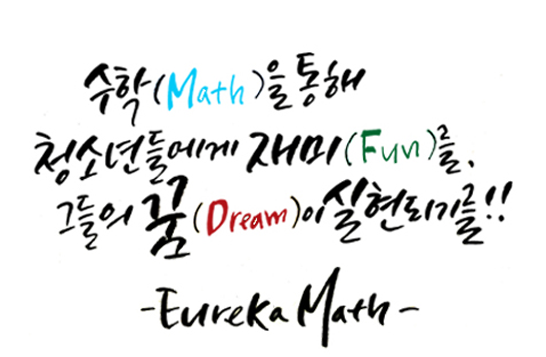 수학(Math)을 통해
청소년들에게 재미(Fun)를,
그들의 꿈(Dream)이 실현되기를!!
-Eureka Math-